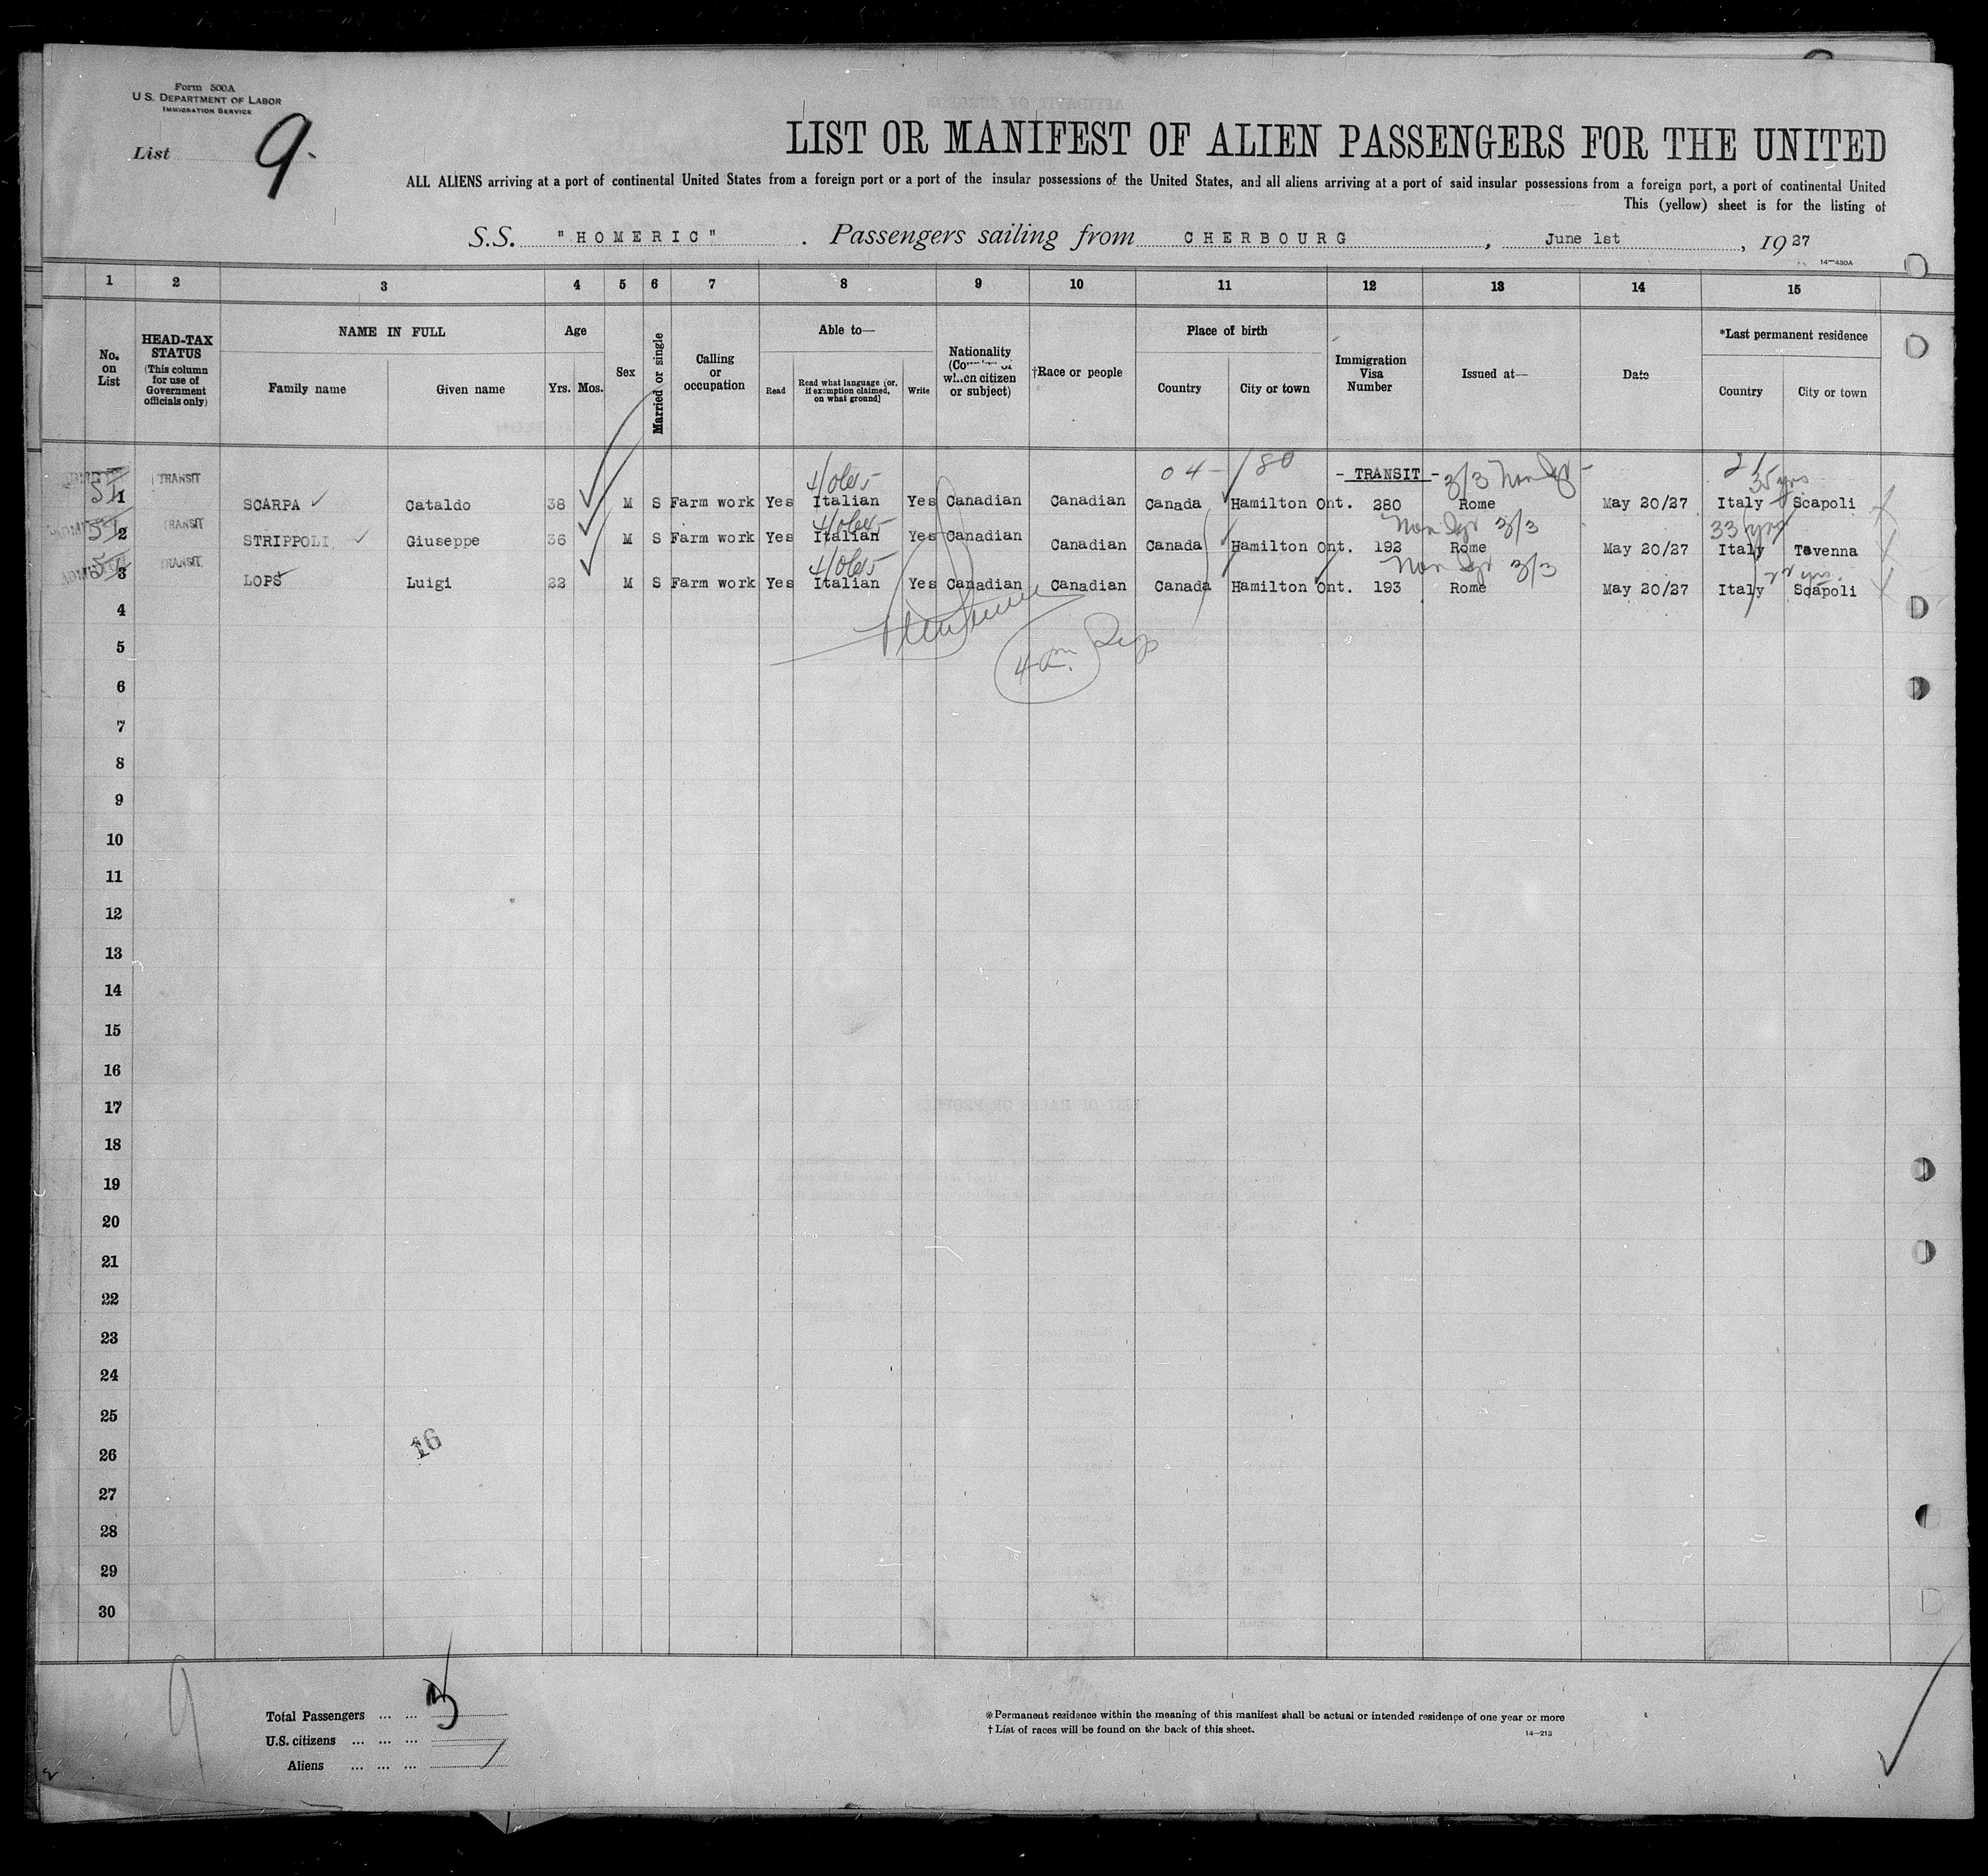 Form 500A
U. S. DEPARTMENT OF LABOR
IMMIGRATION SERVICE
List 9.
LIST OR MANIFEST OF ALIEN PASSENGERS FOR THE UNITED
ALL ALIENS arriving at a port of continental United States from a foreign port or a port of the insular possessions of the United States, and all aliens arriving at a port of said insular possessions from a foreign port, a port of continental United
This (yellow) sheet is for the listing of
S.S. "HOMERIC" . Passengers sailing from CHERBOURG , June 1st , 19 27
14—430A
1 2 3 4 5 6 7 8 9 10 11 12 13 14 15
No. on List
HEAD-TAX STATUS (This column for use of Government officials only)
NAME IN FULL
Family name Given name
Age
Yrs. Mos.
Sex
Married or single
Calling or occupation
Able to—
Read Read what language (or, if exemption claimed, on what ground) Write
Nationality (Co when citizen or subject)
†Race or people
Place of birth
Country City or town
Immigration Visa Number
Issued at—
Date
*Last permanent residence
Country City or town
04-/80 - TRANSIT - 3/3
35 yrs
1 TRANSIT SCARPA Cataldo 38 M S Farm work Yes Italian Yes Canadian Canadian Canada Hamilton Ont. 280 Rome May 20/27 Italy Scapoli
3/3 33 yrs
2 TRANSIT STRIPPOLI Giuseppe 36 M S Farm work Yes Italian Yes Canadian Canadian Canada Hamilton Ont. 192 Rome May 20/27 Italy Tavenna
3/3 yrs.
3 TRANSIT LOPS Luigi 22 M S Farm work Yes Italian Yes Canadian Canadian Canada Hamilton Ont. 193 Rome May 20/27 Italy Scapoli
4
5
6
7
8
9
10
11
12
13
14
15
16
17
18
19
20
21
22
23
24
25
16
26
27
28
29
30
9
Total Passengers ... ... 3
U.S. citizens ... ... ...
Aliens ... ... ...
*Permanent residence within the meaning of this manifest shall be actual or intended residence of one year or more
† List of races will be found on the back of this sheet.
14—213